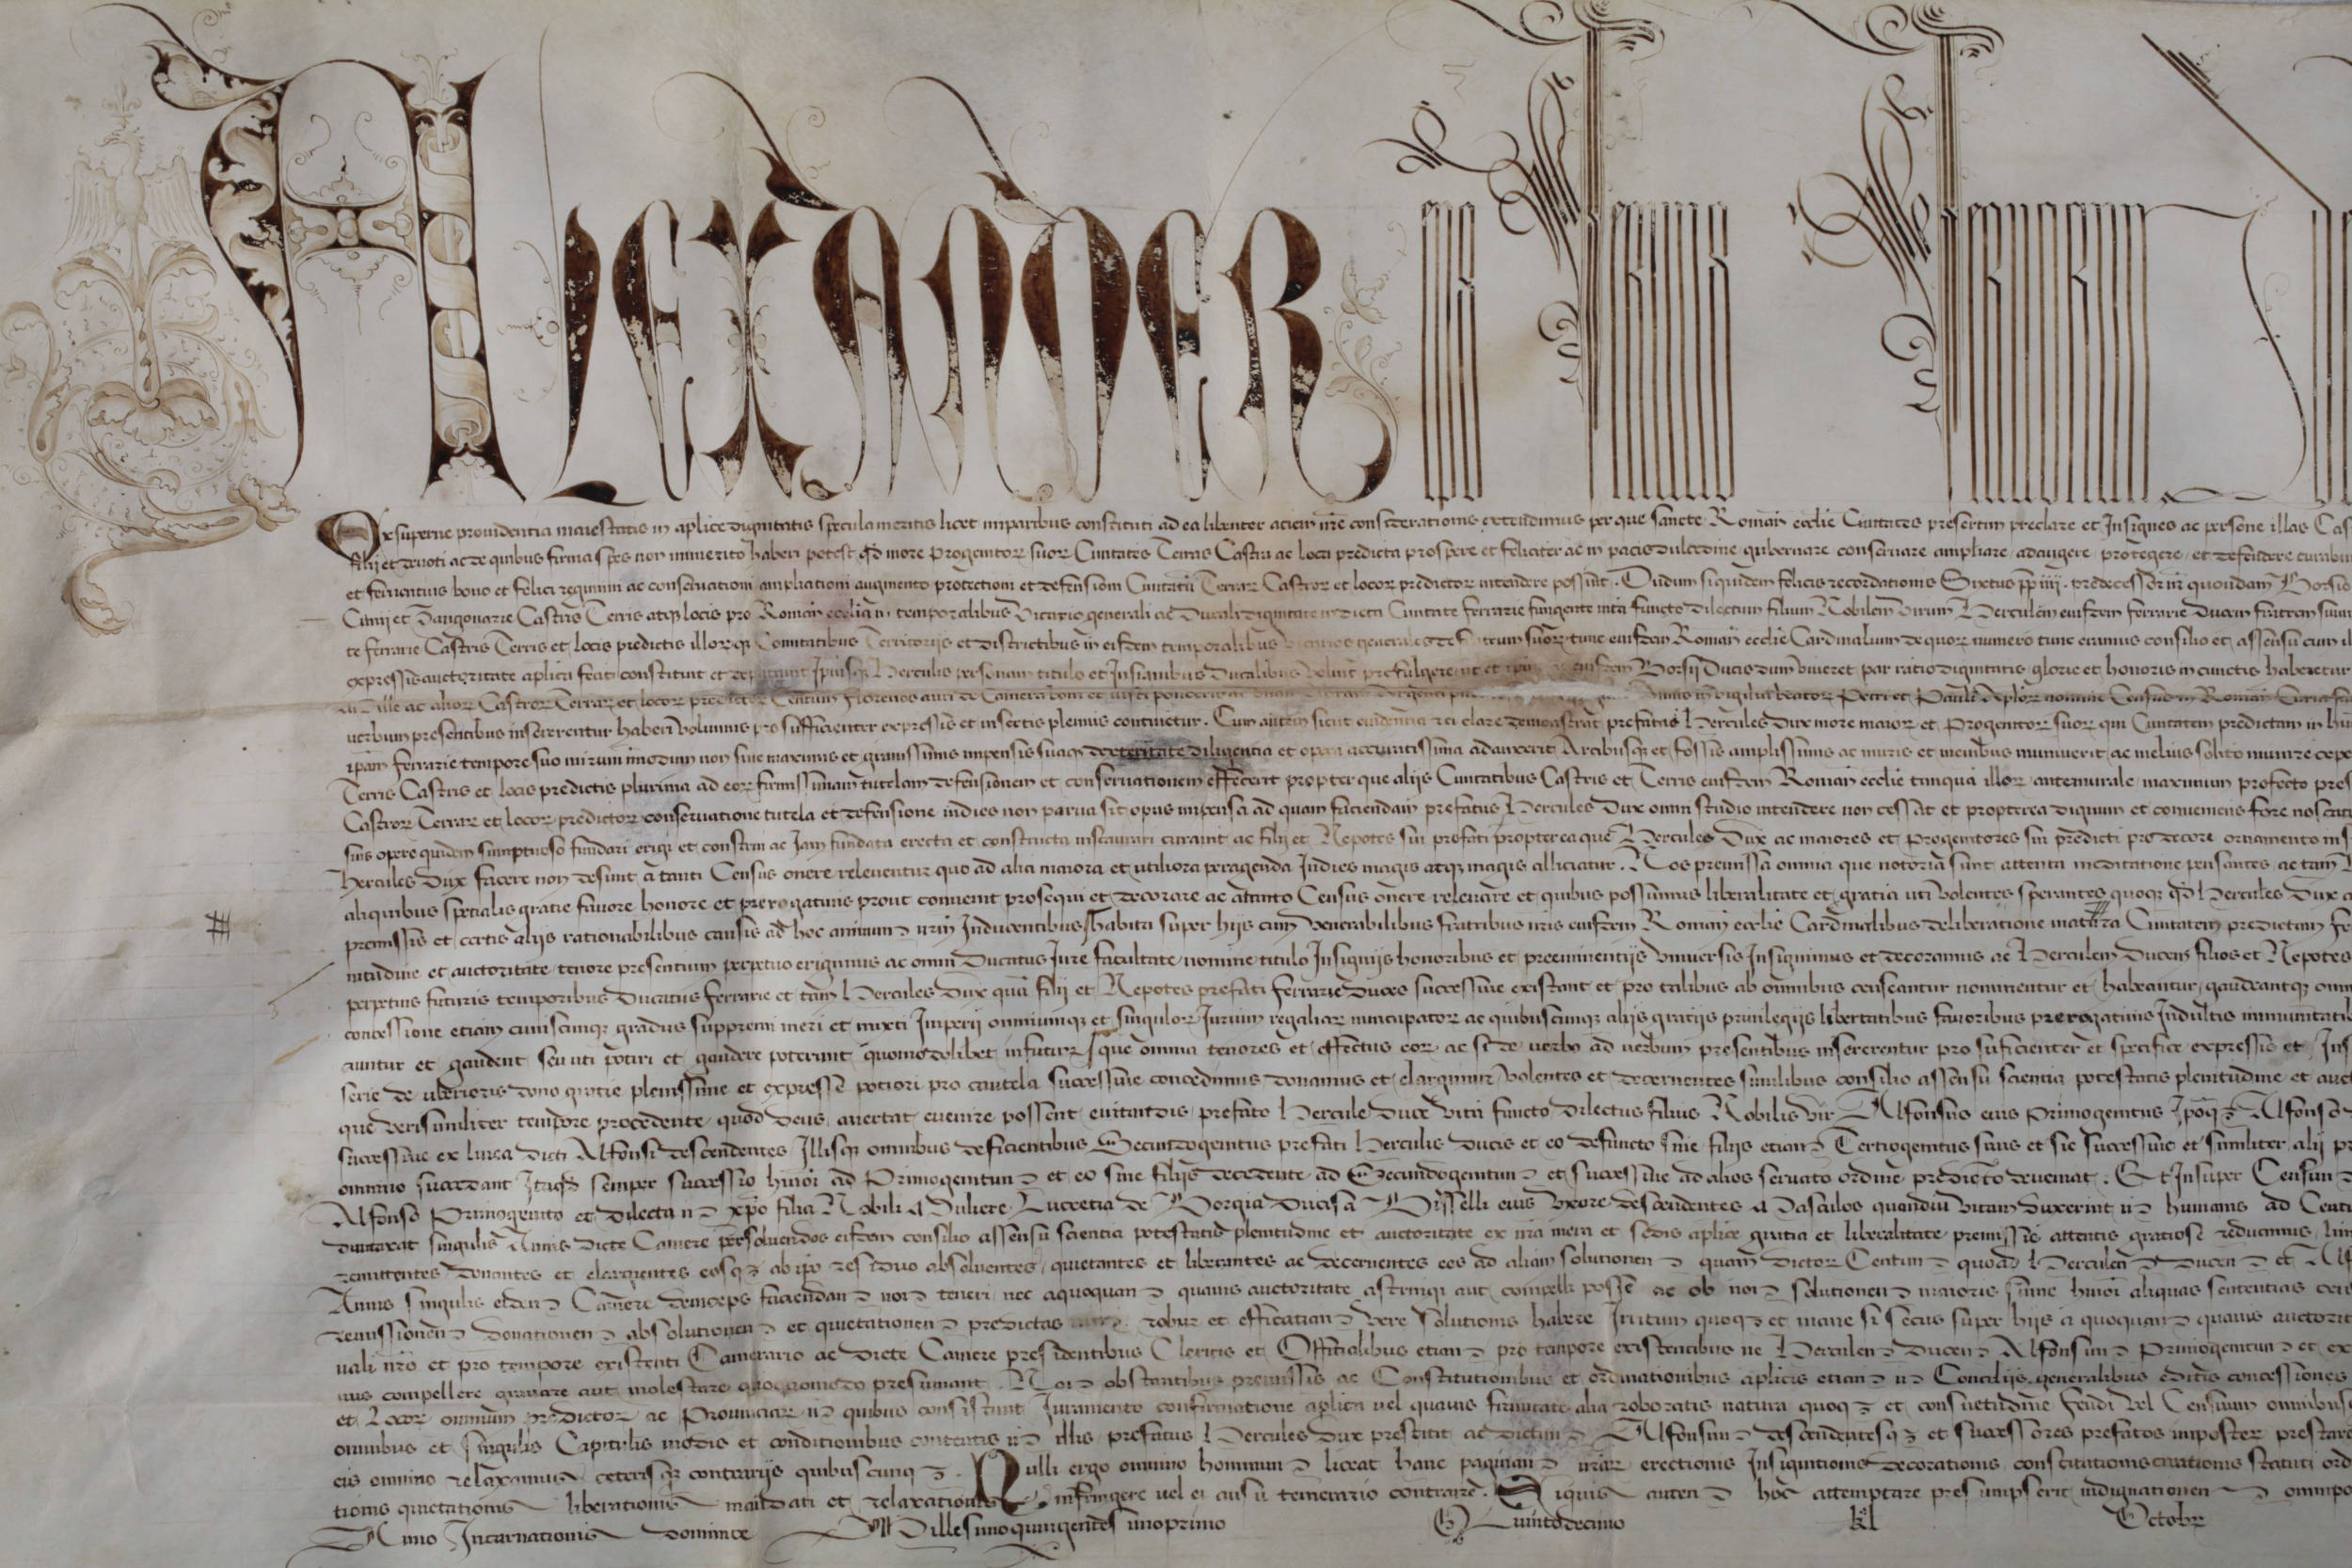 Alexander
Ex superne providentia maiestatis in aplice dignitatis specula meritis licet imparibus constituti ad ea libenter aciem nre considerationis extendimus per que sancte Roman ecclie Civitates presertim preclare et Insignes ac persone illas Cas
filij et devoti ac de quibus firma spes non immerito haberi potest qd more Progenitor suor Civitates Terras Castra ac loca predicta prospere et feliciter ac in pacis dulcedine gubernare conservare ampliare adaugere protegere et defendere curabu
et ferventius bono et felici regimini ac conservationi ampliationi augmento protectioni et defensioni Civitatu Terrar Castror et locor predictor intendere possint. Dudum siquidem felicis recordationis Sixtus pp iiij. predecessor nr quondam Borsio
Castris Terris atq locis pro Roman ecclia in temporalibus Vicario generali ac Ducali dignitate in dicta Civitate ferrarie fungente vita functo dilectum filium Nobilem virum Herculem eiusdem ferrarie Ducem fratrem suum
te ferrarie Castris Terris et locis predictis illorq Comitatibus Territorijs et districtibus in eisdem temporalibus suor tunc eiusdem Roman ecclie Cardinalium de quor numero tunc eramus consilio et assensu cum il
expressis auctoritate aplica fecit constituit et Herculis personam titulo et Insignibus Ducalibus voluit prefulgere Borsij Ducis dum viveret par ratio dignitatis glorie et honoris in cunctis haberetur
ac alior Castror Terrar et locor predictor Centum florenos auri de Camera boni et iusti ponderis in vigilia beator Petri et Pauli Aplor nomine Census in Roman Curia
verbum presentibus insererentur haberi volumus pro sufficienter expressis et insertis plenius continetur. Cum autem sicut evidentia rei clare demonstrat prefatus Hercules Dux more maior et Progenitor suor qui Civitatem predictam in hu
ipam ferrarie tempore suo mirum inmodum non sine maximis et gravissimis impensis suaq dexteritate diligentia et opera accuratissima adauxerit Arcibusq et fossis amplissimis ac muris et menibus muniverit ac melius solito munire cepe
Terris Castris et locis predictis plurima ad eor firmissimam tutelam defensionem et conservationem effecerit propter que alijs Civitatibus Castris et Terris eiusdem Roman ecclie tanqua illor antemurale maximum profecto pres
Castror Terrar et locor predictor conservatione tutela et defensione indies non parva sit opus impensa ad quam faciendam prefatus Hercules Dux omni studio intendere non cessat et propterea dignum et conveniens fore
suis opere quidem sumptuoso fundari erigi et construi ac Iam fundata erecta et constructa instaurari curarint ac filij et Nepotes sui prefati propterea que Hercules Dux ac maiores et Progenitores sui predicti pro decore ornamento
Hercules Dux facere non desinit a tanti Census onere releventur quo ad alia maiora et utiliora peragenda Indies magis atq magis alliciatur. Nos premissa omnia que notoria sunt attenta meditatione pensantes ac tam
aliquibus specialis gratie favore honore et prerogativis prout convenit prosequi et decorare ac a tanto Census onere relevare et quibus possumus liberalitate et gratia uti volentes sperantes quoq qd Hercules Dux
premissis et certis alijs rationabilibus causis ad hoc animum nrm Inducentibus habita super hijs cum Venerabilibus fratribus nris eiusdem Roman ecclie Cardinalibus deliberatione matura Civitatem predictam fe
nitudine et auctoritate tenore presentium perpetuo erigimus ac omni Ducatus Iure facultate nomine titulo Insignijs honoribus et preeminentijs Universis Insignimus et decoramus ac Herculem Ducem filios et Nepotes
perpetuis futuris temporibus Ducatus ferrarie et tam Hercules Dux qua filij et Nepotes prefati ferrarie Duces successive existant et pro talibus ab omnibus censeantur nominentur et habeantur gaudeantq omn
concessione etiam cuiuscunq gradus suppremi meri et mixti Imperij omniumq et singulor Iurium regaliar nuncupator ac quibuscunq alijs gratijs privilegijs libertatibus favoribus prerogativis Indultis immunitatib
utuntur et gaudent seu uti potiri et gaudere poterunt quomodolibet infutur que omnia tenores et effectus eor ac si de verbo ad verbum presentibus insererentur pro suficienter et specifice expressis et Ins
serie de uberioris dono gratie plenissime et expresse potiori pro cautela successive concedimus donamus et elargimur Volentes et decernentes similibus consilio assensu scientia potestatis plenitudine et auct
que verisimiliter tempore procedente quod deus avertat evenire possent evitandis prefato Hercule Duce vita functo dilectus filius Nobilis vir Alfonsus eius Primogenitus Alfonso
successive ex linea dicti Alfonsi descendentes Illisq omnibus deficientibus Secundogenitus prefati Herculis Ducis et eo defuncto sine filijs etiam Tertiogenitus suus et sic successive et similiter alij pr
omnino succedant Itaqd semper successio huiusmodi ad Primogenitum et eo sine filijs decedente ad Secundogenitum et successive ad alios servato ordine predicto deveniat. Et Insuper Censum
Alfonso Primogenito et dilecta in xpo filia Nobili Muliere Lucretia de Borgia Ducissa Bisselli eius Uxore descendentes Masculos quandiu vitam duxerint in humanis ad Centu
duntaxat singulis Annis dicte Camere persolvendos eisdem consilio assensu scientia potestatis plenitudine et auctoritate ex nra mera et sedis aplice gratia et liberalitate premissis attentis gratiose reducimus
remittentes donantes et elargientes eosq ab ipo residuo absolventes quietantes et liberantes ac decernentes eos ad aliam solutionem quam dictor Centum quoad Herculem Ducem et Alf
Annis singulis eidem Camere deinceps faciendam non teneri nec a quoquam quavis auctoritate astringi aut compelli posse ac ob non solutionem maioris sume huiusmodi aliquas sententias
remissionem donationem absolutionem et quietationem predictas robur et efficatiam vere solutionis habere Irritum quoq et inane si secus super hijs a quoquam quavis auctorit
vali nro et pro tempore existenti Camerario ac dicte Camere presidentibus Clericis et Officialibus etiam pro tempore existentibus ne Herculem Ducem Alfonsum Primogenitum et ex
compellere gravare aut molestare quoquomodo presumant. Non obstantibus premissis ac Constitutionibus et ordinationibus aplicis etiam in Concilijs generalibus editis concessiones
et Locor omnium predictor ac Provinciar in quibus consistunt Iuramento confirmatione aplica vel quavis firmitate alia roboratis natura quoq et consuetudine feudi vel Censuum omnibus
omnibus et singulis Capitulis modis et conditionibus contentis in illis prefatus Hercules Dux prestitit ac dictum Alfonsum descendentesq et successores prefatos imposter prestare
eis omnino relaxamus ceterisq contrarijs quibuscunq. Nulli ergo omnino hominum liceat hanc paginam nrar erectionis Insignitionis decorationis constitutionis statuti ord
tionis quietationis liberationis mandati et relaxationis infringere vel ei ausu temerario contraire. Siquis autem hoc attemptare presumpserit indignationem omnipo
Anno Incarnationis dominice Millesimoquingentesimoprimo Quintodecimo kl Octobr